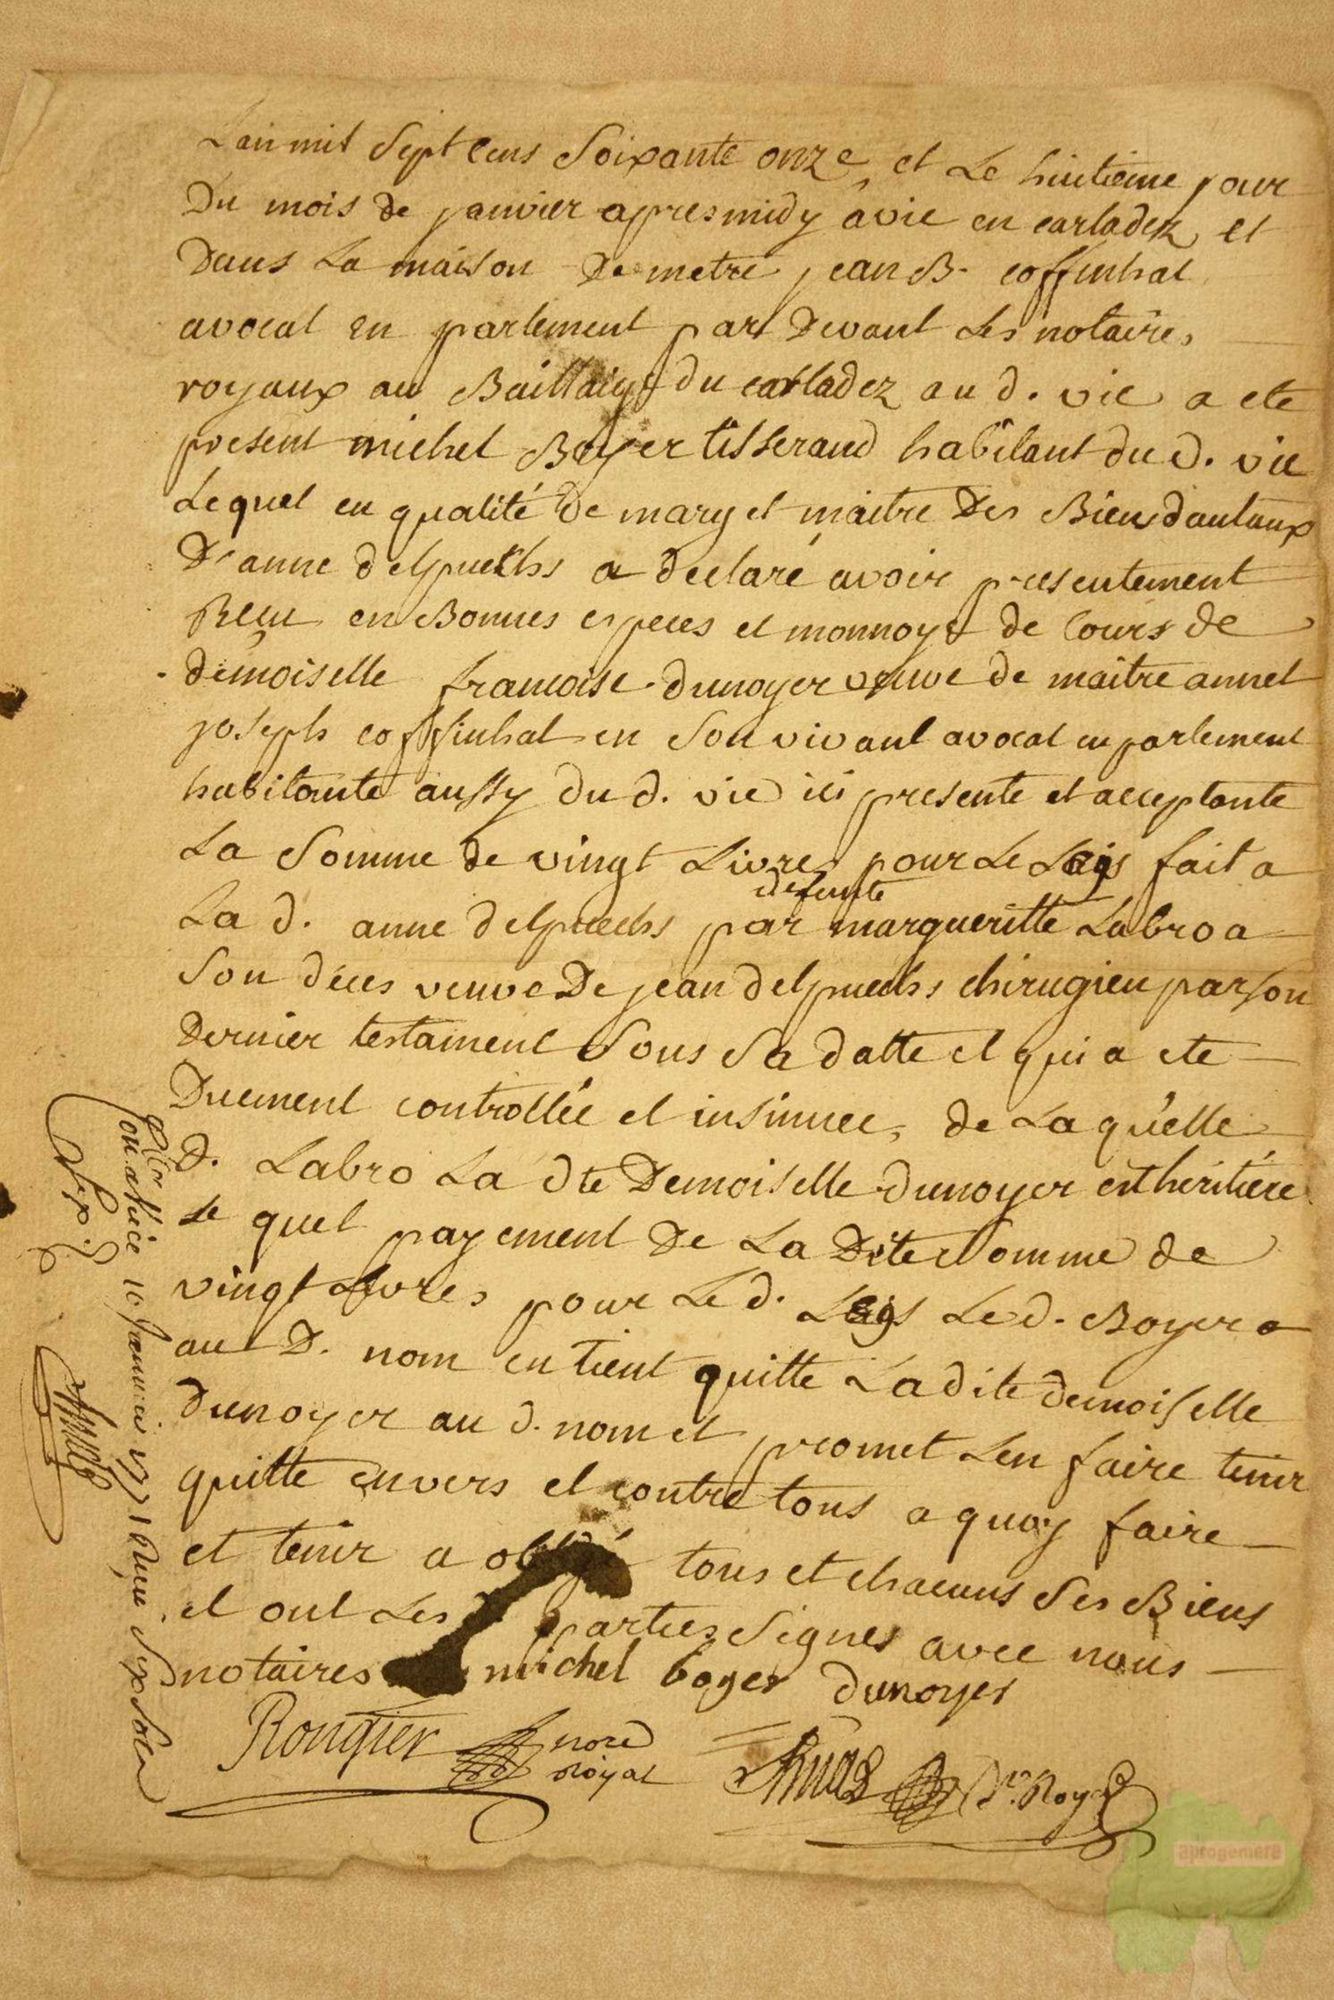 L'an mil Sept Cens Soixante onze et Le huitieme jour
Du mois de janvier apresmidy a vic en carladez et
Dans La maison De metre jean B. coffinhal
avocat en parlement par Devant Les notaires
royaux au Bailliage du carladez au d. vic a ete
present michel Boyer tisserand habitant du d. vic
Lequel en qualité de mary et maitre Des Biens dautaux
D'anne delpuechs a declaré avoir presentement
Reçu en Bonnes especes et monnoye de Cours de
demoiselle francoise dunoyer veuve de maitre annet
joseph coffinhal en Son vivant avocat en parlement
habitante aussy du d. vic ici presente et acceptante
La Somme de vingt Livres pour Le Legs fait a
La d. anne delpuechs par defunte margueritte Labro a
Son déces veuve De jean delpuechs chirugien par son
Dernier testament Sous Sa datte et qui a ete
Duement controllée et insinuee, de La quelle
D. Labro La dte Demoiselle dunoyer est héritiére
Le quel payement De La Dite Somme de
vingt Livres pour Le d. Legs Le d. Boyer a
au D. nom en tient quitte La dite demoiselle
Dunoyer au d. nom et promet Len faire tenir
quitte envers et contre tous a quoy faire
et tenir a obligé tous et chacuns Ses Biens
et ont Les parties Signes avec nous
notaires michel boyer dunoyer
Rongier nore
Royal
Royal
aprogemere
10 Janvier 1771 Reçu Six Sols